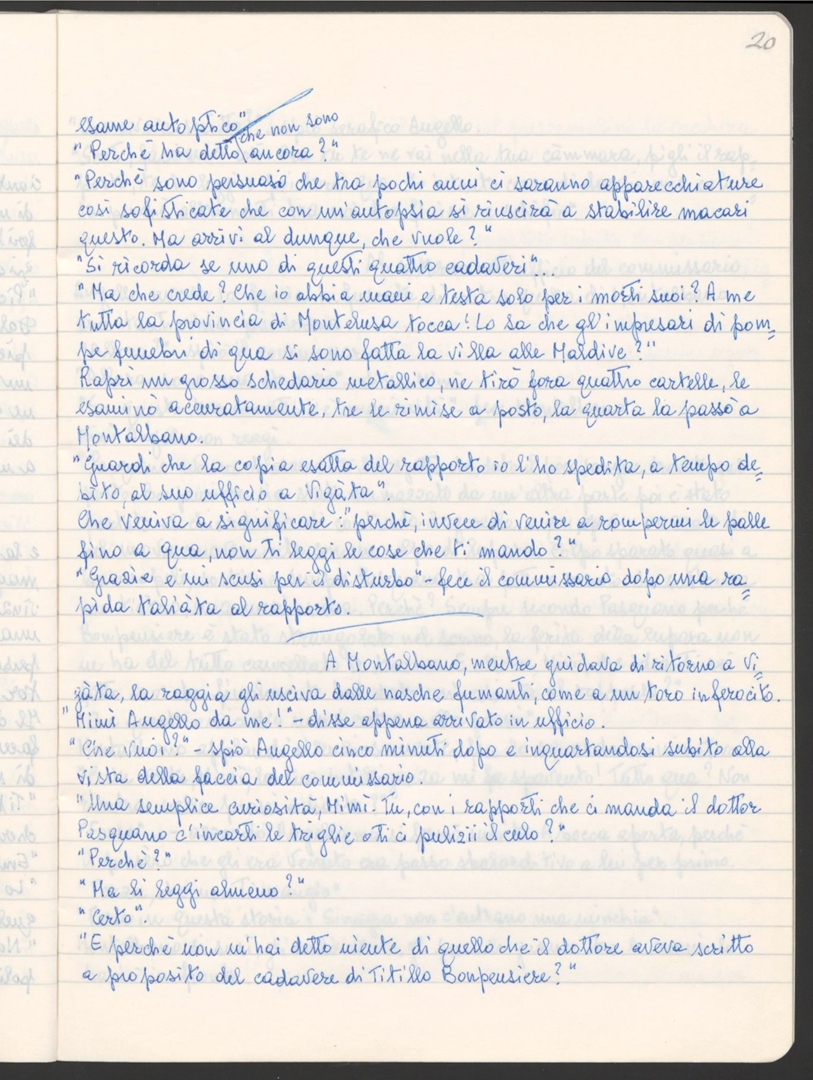 20
esame autoptico"
che non sono
"Perchè ha detto ancora?"
"Perchè sono persuaso che tra pochi anni ci saranno apparecchiature
così sofisticate che con un'autopsia si riuscirà a stabilire macari
questo. Ma arrivi al dunque, che vuole?"
"Si ricorda se uno di questi quattro cadaveri"...
"Ma che crede? Che io abbia mani e testa solo per i morti suoi? A me
tutta la provincia di Montelusa tocca! Lo sa che gl'impresari di pom=
pe funebri di qua si sono fatta la villa alle Maldive?"
Raprì un grosso schedario metallico, ne tirò fora quattro cartelle, le
esaminò accuratamente, tre le rimise a posto, la quarta la passò a
Montalbano.
"Guardi che la copia esatta del rapporto io l'ho spedita, a tempo de=
bito, al suo ufficio a Vigàta"
Che veniva a significare: "perchè, invece di venire a rompermi le palle
fino a qua, non ti leggi le cose che ti mando?"
"Grazie e mi scusi per il disturbo" - fece il commissario dopo una ra=
pida taliàta al rapporto.
A Montalbano, mentre guidava di ritorno a Vi=
gàta, la raggia gli usciva dalle nasche fumanti, come a un toro inferocito.
"Mimì Augello da me!" - disse appena arrivato in ufficio.
"Che vuoi?" - spiò Augello cinco minuti dopo e inquartandosi subito alla
vista della faccia del commissario.
"Una semplice curiosità, Mimì. Tu, con i rapporti che ci manda il dottor
Pasquano c'incarti le triglie o ti ci pulizii il culo?"
"Perchè?"
"Ma li leggi almeno?"
"Certo".
"E perchè non m'hai detto niente di quello che il dottore aveva scritto
a proposito del cadavere di Titillo Bonpensiere?"